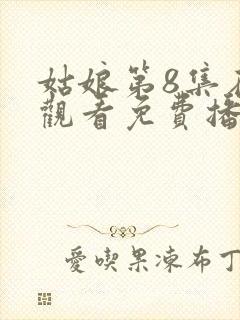 姑娘第8集
觀看免費播
愛喫果凍布丁